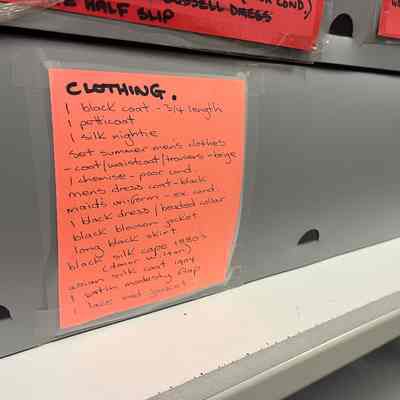 COND.)
RUSSELL DRESS
HALF SLIP
CLOTHING.
1 black coat - 3/4 length
1 petticoat
1 silk nightie
Set summer mens clothes
- coat/waistcoat/trousers - beige
1 chemise - poor cond.
mens dress coat - black
maids uniform - ex. cond.
1 black dress / beaded collar
black blouson jacket
long black skirt
black silk cape 1880s
asian silk coat 1914
1 satin modesty flap
1 lace jacket